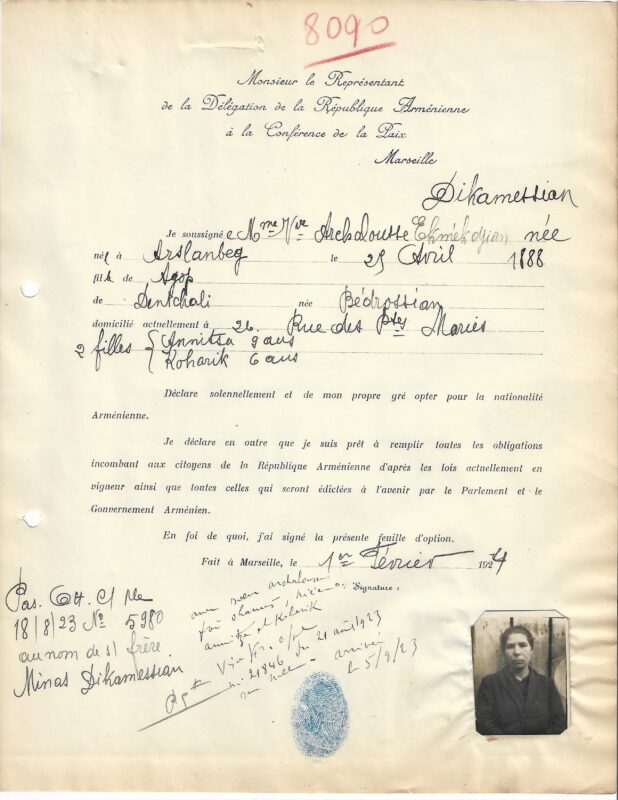 8090
Monsieur le Représentant
de la Délégation de la République Arménienne
à la Conférence de la Paix
Marseille
Dikamessian
Je soussigné e Mme Vve Archalousse Ekmekdjian née
né e à Arslanbeg le 25 Avril 1888
fil le de Agop
de Dentchali née Bédrossian
domicilié actuellement à 26. Rue des Ptes Maries
2 filles { Annitsa 9 ans
Koharik 6 ans
Déclare solennellement et de mon propre gré opter pour la nationalité
Arménienne.
Je déclare en outre que je suis prêt à remplir toutes les obligations
incombant aux citoyens de la République Arménienne d'après les lois actuellement en
vigueur ainsi que toutes celles qui seront édictées à l'avenir par le Parlement et le
Gouvernement Arménien.
En foi de quoi, j'ai signé la présente feuille d'option.
Fait à Marseille, le 1er Février 1924
Signature :
Pas.
18/8/23 No 5980
au nom de s/ frère
Minas Dikamessian
annitza et Koharik
n. 21846 du 21 août 1923
arrivée
le 5/9/23